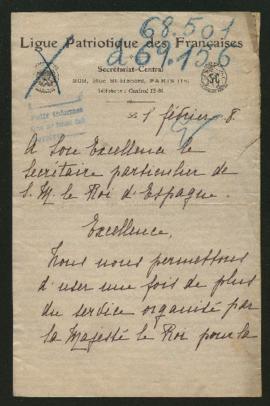 68.501
à 69.156
Ligue Patriotique des Françaises
Secrétariat-Central
Rue St-Honoré, PARIS
Téléphone: Central
1 février 8.
A Son Excellence le
Secrétaire particulier de
S. M. le Roi d'Espagne.
Excellence,
Nous nous permettons
d'user une fois de plus
du service organisé par
Sa Majesté le Roi pour la